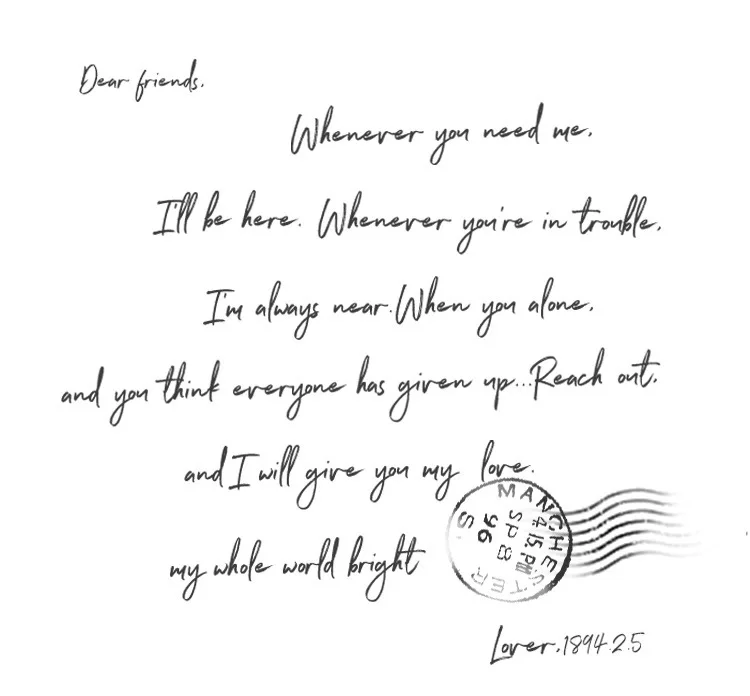 Dear friends.
Whenever you need me.
I'll be here. Whenever you're in trouble.
I'm always near.When you alone.
and you think everyone has given up...Reach out.
and I will give you my love.
my whole world bright
MANCHESTER S.
4.15.PM
SP 8
96
Lover.1894.2.5